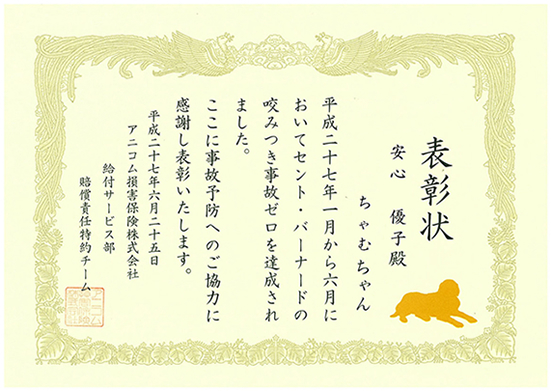 表彰状
安心 優子殿
ちゃむちゃん
平成二十七年一月から六月に
おいてセント・バーナードの
咬みつき事故ゼロを達成され
ました。
ここに事故予防へのご協力に
感謝し表彰いたします。
平成二十七年六月二十五日
アニコム損害保険株式会社
給付サービス部
賠償責任特約チーム